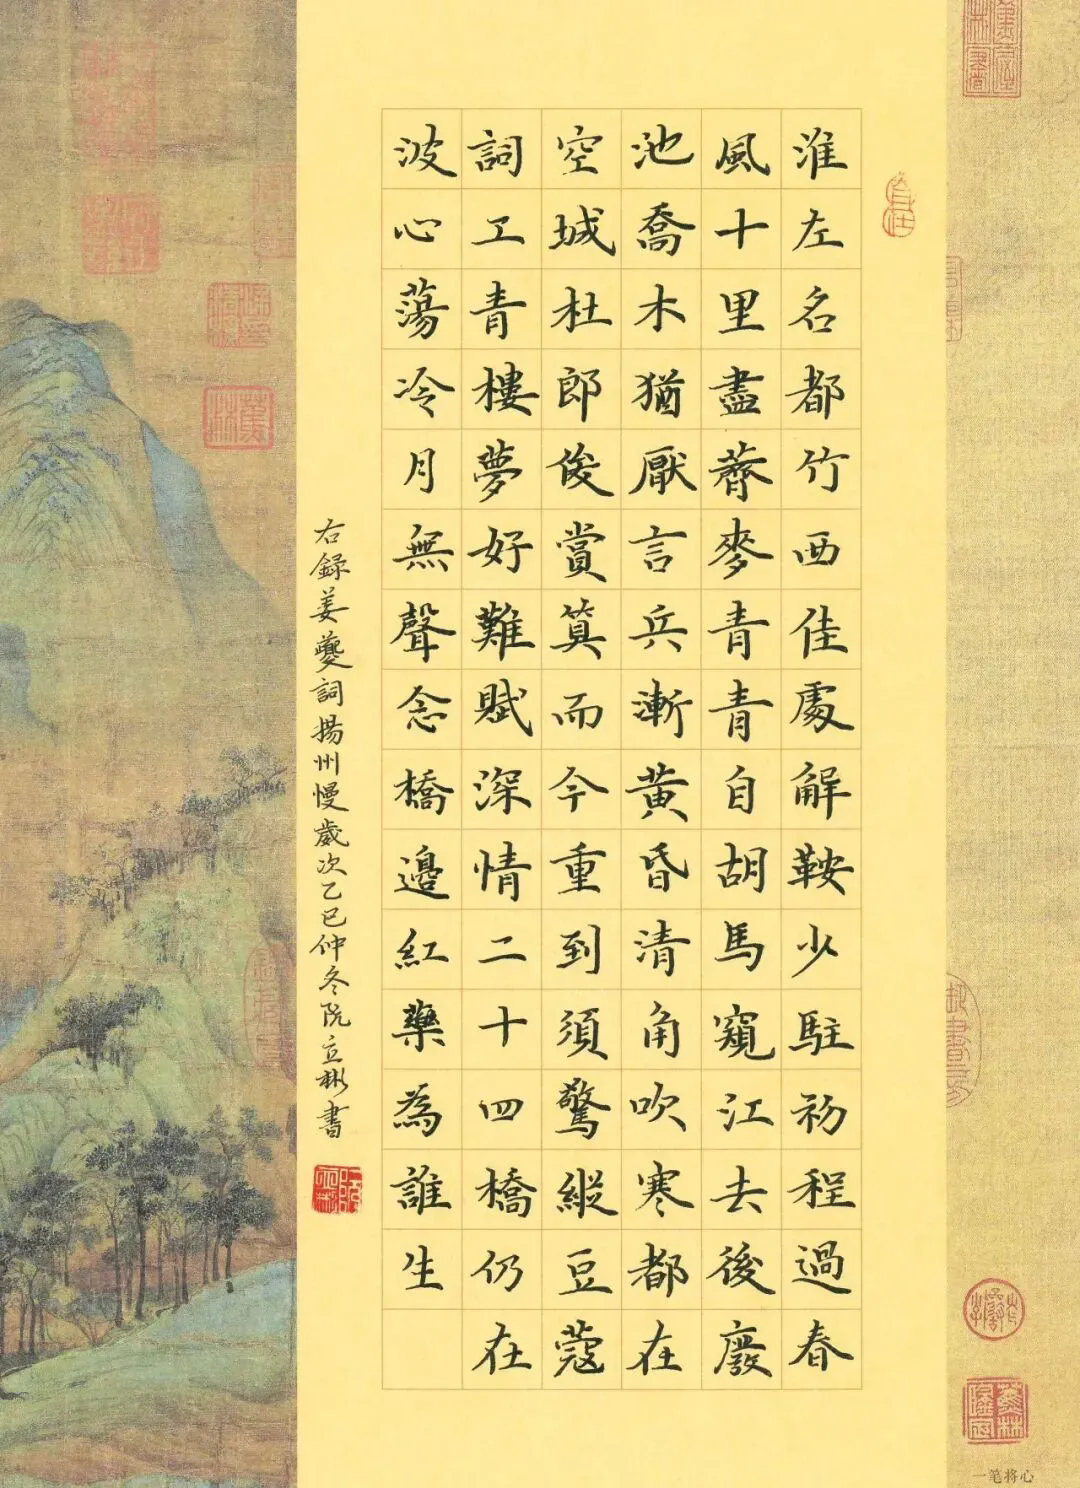 淮左名都竹西佳處解鞍少駐初程過春
風十里盡薺麥青青自胡馬窺江去後廢
池喬木猶厭言兵漸黃昏清角吹寒都在
空城杜郎俊賞算而今重到須驚縱豆蔻
詞工青樓夢好難賦深情二十四橋仍在
波心蕩冷月無聲念橋邊紅藥為誰生
右錄姜夔詞揚州慢歲次乙巳仲冬阮立彬書
一笔将心